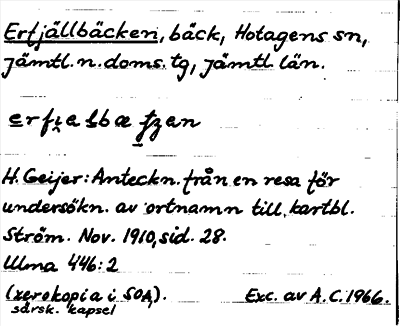 Erfjällbäcken, bäck, Hotagens sn,
Jämtl. n. doms. tg, Jämtl. län.
H. Geijer: Anteckn. från en resa för
undersökn. av ortnamn till kartbl.
Ström. Nov. 1910, sid. 28.
Ulma 446:2
(xerokopia i SOA,). Exc. av A.C. 1966.
särsk. kapsel